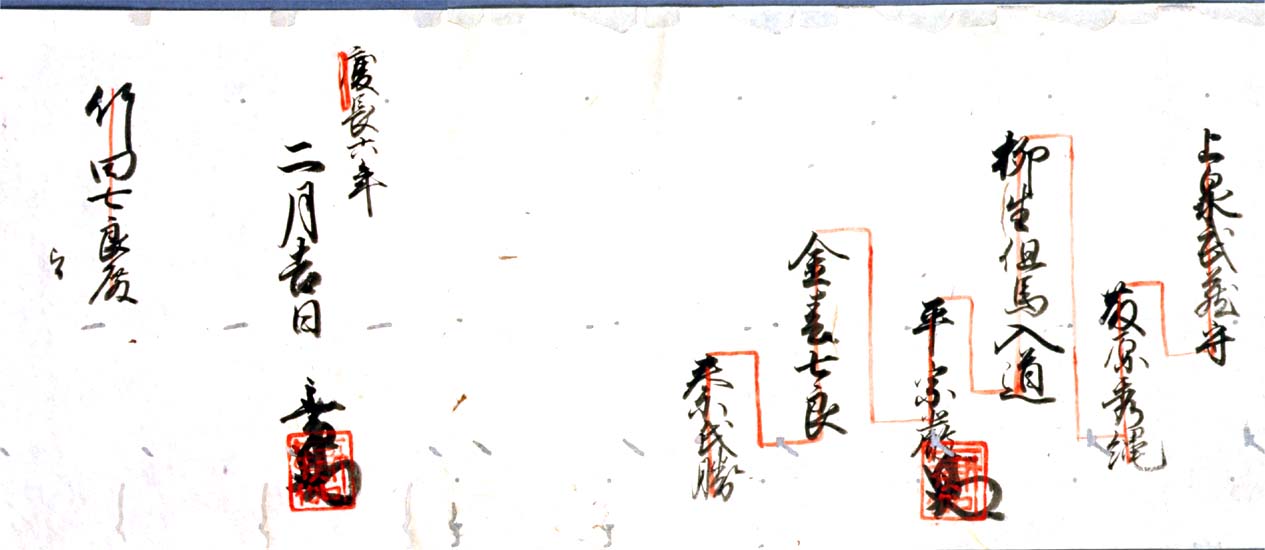 上泉武蔵守
藤原秀綱
柳生但馬入道
平宗厳
金春七郎
秦氏勝
慶長六年
二月吉日
竹田七郎殿